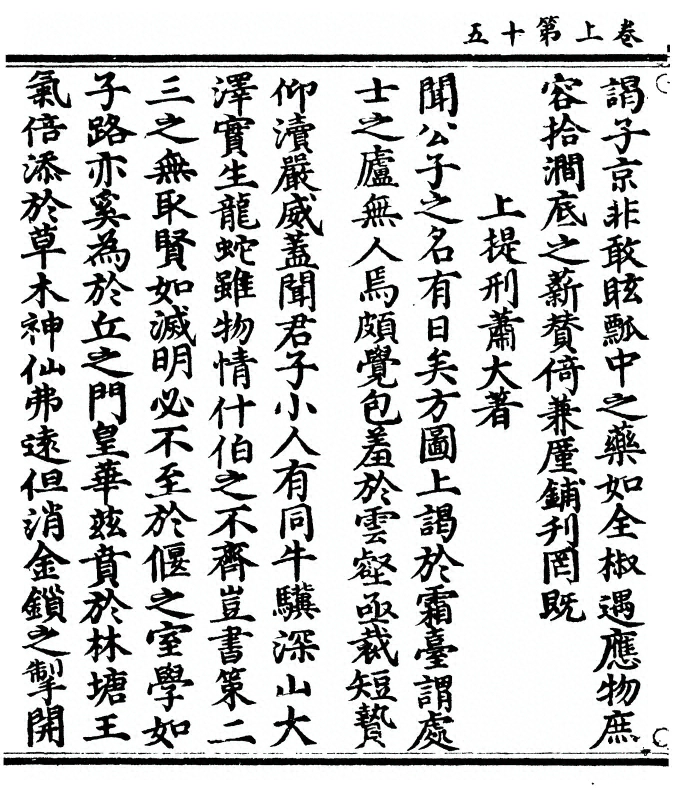 卷上第十五
謁子京非敢眩瓢中之藥如全椒遇應物庶
容拾澗底之薪贊倚兼厪鋪刋罔既
上提刑蕭大著
聞公子之名有日矣方圖上謁於霜臺謂處
士之廬無人焉頗覺包羞於雲壑亟裁短贄
仰瀆嚴威蓋聞君子小人有同牛驥深山大
澤實生龍蛇雖物情什伯之不齊豈書第二
三之無取賢如滅明必不至於偃之室學如
子路亦奚為於丘之門皇華玆賁於林塘王
氣倍添於草木神仙弗遠但消金鎖之掣開